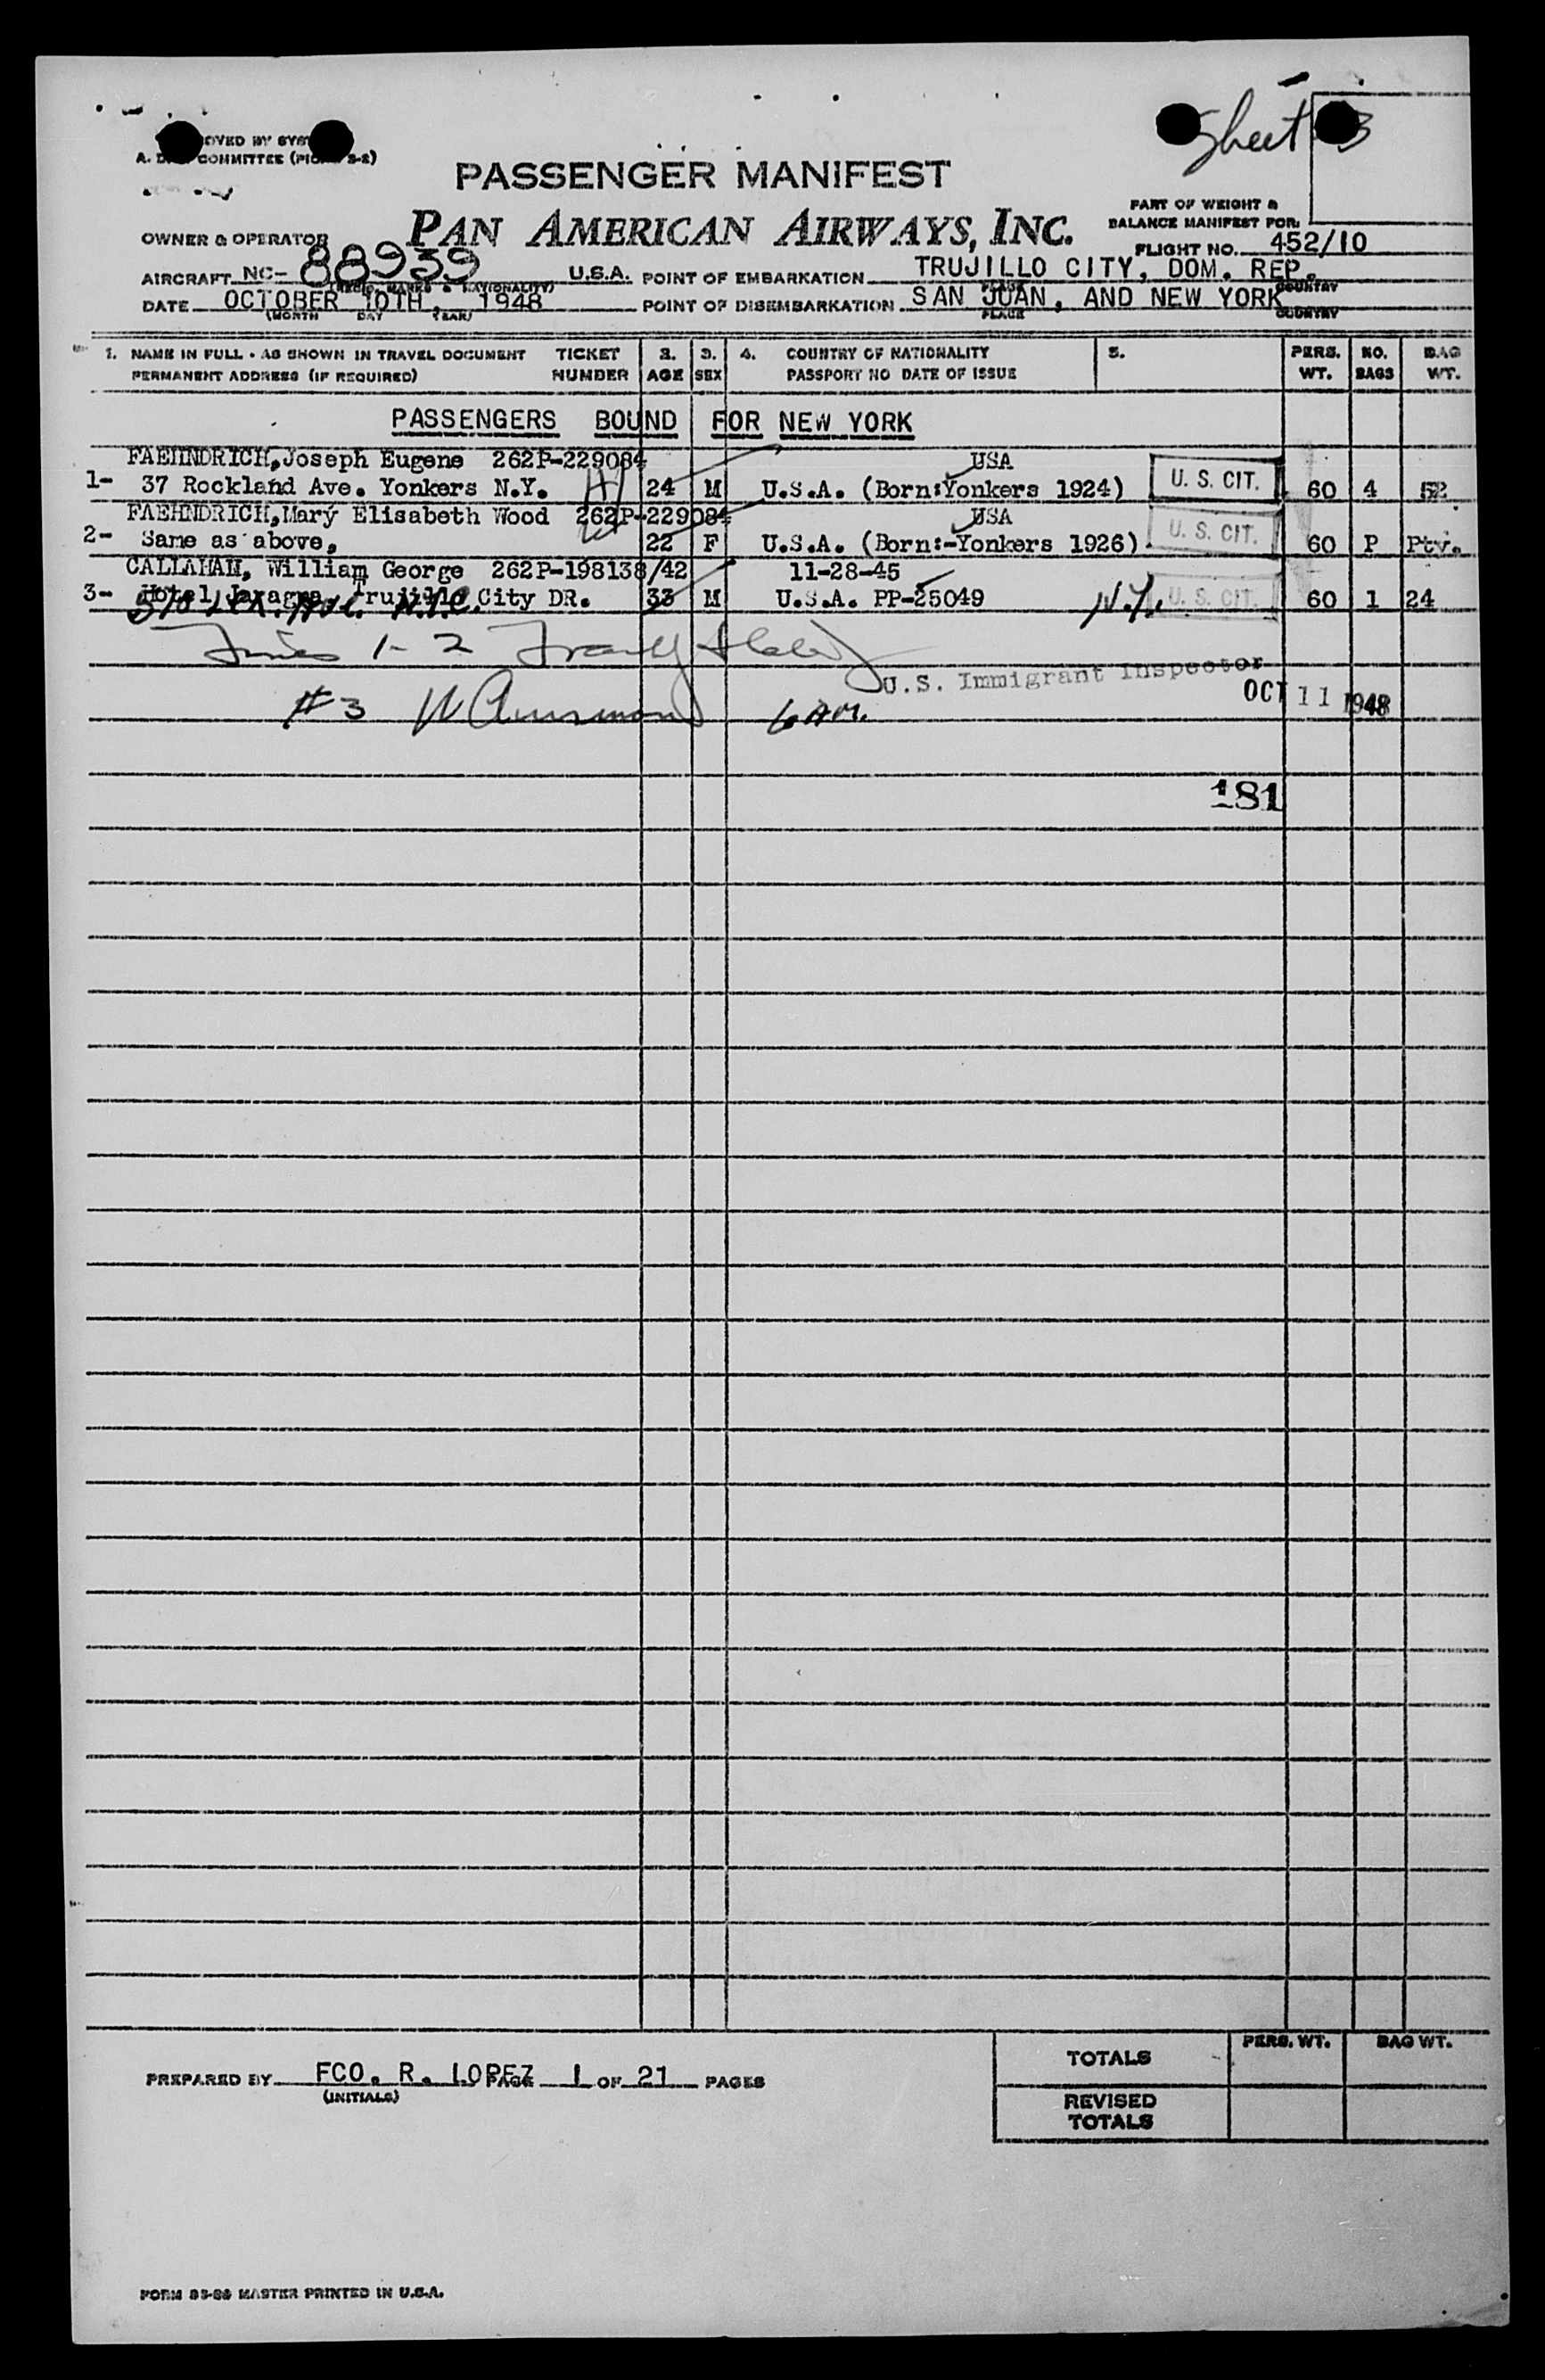 Sheet 3
COMMITTEE
PASSENGER MANIFEST
PAN AMERICAN AIRWAYS, INC.
PART OF WEIGHT &
BALANCE MANIFEST FOR:
OWNER & OPERATOR
FLIGHT NO. 452/10
AIRCRAFT NC- 88939 U.S.A. POINT OF EMBARKATION TRUJILLO CITY, DOM. REP.
(REGIS. MARKS & NATIONALITY) PLACE COUNTRY
DATE OCTOBER 10TH, 1948 POINT OF DISEMBARKATION SAN JUAN, AND NEW YORK
(MONTH DAY YEAR) PLACE COUNTRY
1. NAME IN FULL - AS SHOWN IN TRAVEL DOCUMENT TICKET 2. 3. 4. COUNTRY OF NATIONALITY 5. PERS. NO. BAG
PERMANENT ADDRESS (IF REQUIRED) NUMBER AGE SEX PASSPORT NO DATE OF ISSUE WT. BAGS WT.
PASSENGERS BOUND FOR NEW YORK
FAEHNDRICH, Joseph Eugene 262P-229084 USA
1- 37 Rockland Ave. Yonkers N.Y. 24 M U.S.A. (Born:Yonkers 1924) U. S. CIT. 60 4 52
FAEHNDRICH, Mary Elisabeth Wood 262P-229084 USA
2- Same as above, 22 F U.S.A. (Born:-Yonkers 1926) U. S. CIT. 60 P Pty.
CALLAHAN, William George 262P-198138/42 11-28-45
3- Hotel Jaragua, Trujillo City DR. 33 M U.S.A. PP-25049 N.Y. U. S. CIT. 60 1 24
Lex. Ave. N.Y.C.
Lines 1-2
U.S. Immigrant Inspector
#3 6 AM. OCT 11 1948
181
TOTALS PERS. WT. BAG WT.
PREPARED BY FCO. R. LOPEZ PAGE 1 OF 21 PAGES
(INITIALS)
REVISED
TOTALS
FORM 33-26 MASTER PRINTED IN U.S.A.